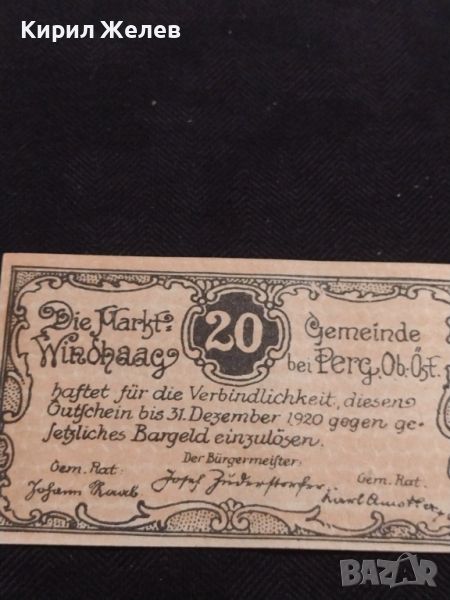 Кирил Желев
Die Markt-
Windhaag
20
Gemeinde
bei Perg, Ob. Öst.
haftet für die Verbindlichkeit, diesen
Gutschein bis 31. Dezember 1920 gegen ge-
setzliches Bargeld einzulösen.
Der Bürgermeister:
Gem. Rat:
Johann Raab
Josef
Gem. Rat:
Karl
BAZAR